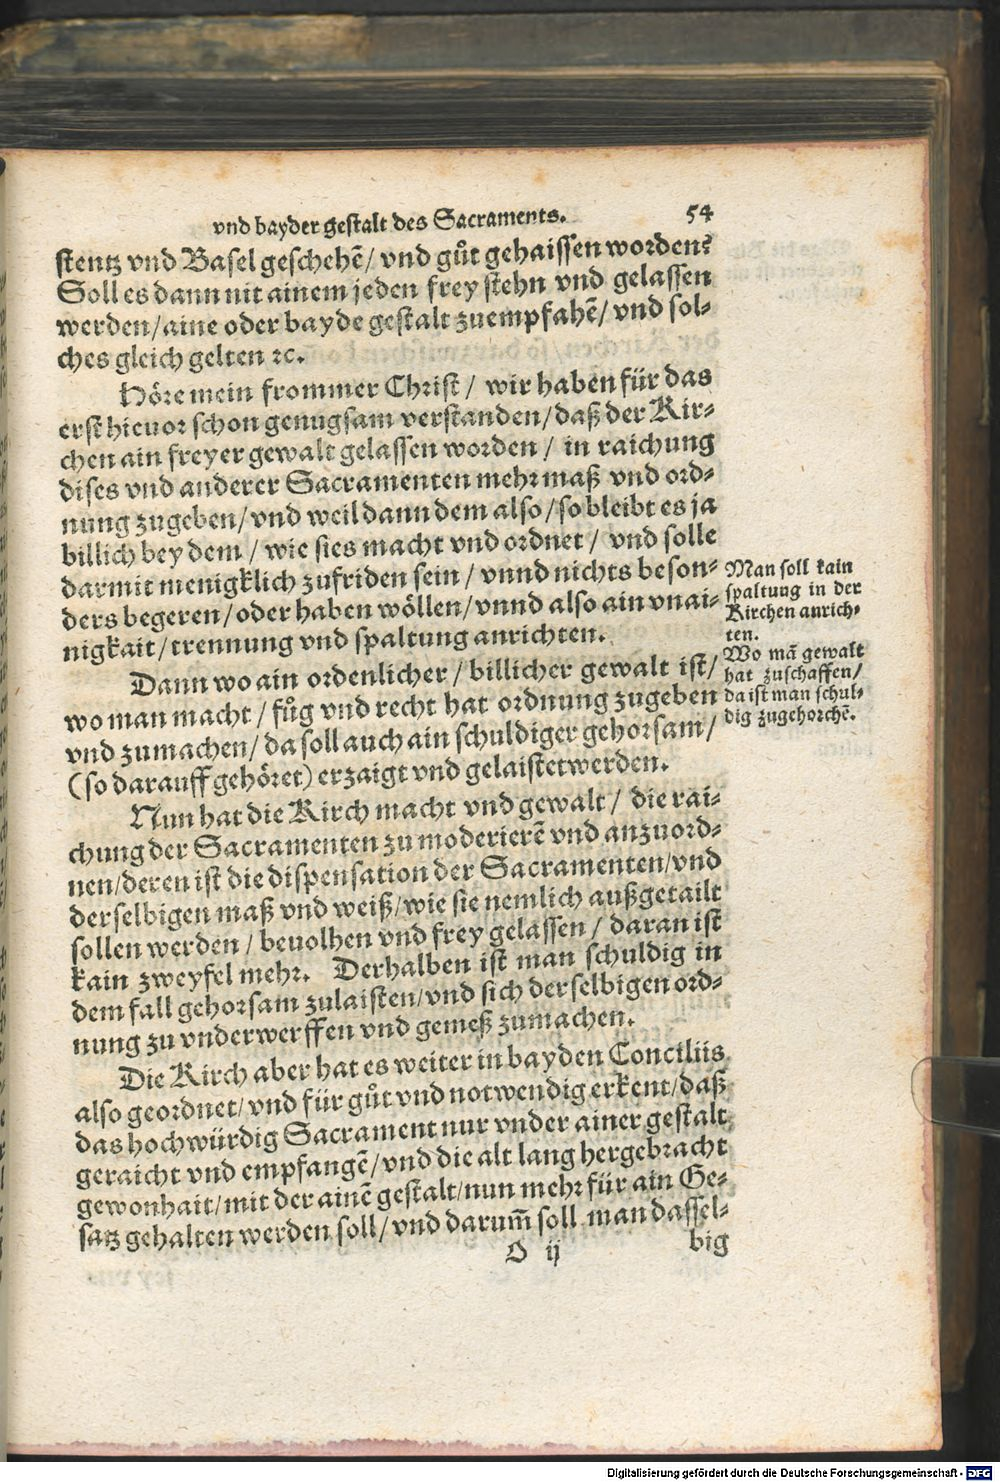 vnd bayder gestalt des Sacraments. 54
stentz vnd Basel geschehẽ/ vnd gůt gehaissen worden?
Soll es dann nit ainem jeden frey stehn vnd gelassen
werden/ aine oder bayde gestalt zuempfahẽ/ vnd sol-
ches gleich gelten ꝛc.
Höre mein frommer Christ/ wir haben für das
erst hieuor schon genugsam verstanden/ daß der Kir-
chen ain freyer gewalt gelassen worden/ in raichung
dises vnd anderer Sacramenten mehr maß vnd ord-
nung zugeben/ vnd weil dann dem also/ so bleibt es ja
billich bey dem/ wie sies macht vnd ordnet/ vnd solle
darmit menigklich zufriden sein/ vnnd nichts beson-
ders begeren/ oder haben wöllen/ vnnd also ain vnai-
nigkait/ trennung vnd spaltung anrichten.
Man soll kain
spaltung in der
Kirchen anrich-
ten.
Wo mã gewalt
hat zuschaffen/
da ist man schul-
dig zugehorchẽ.
Dann wo ain ordenlicher/ billicher gewalt ist/
wo man macht/ fůg vnd recht hat ordnung zugeben
vnd zumachen/ da soll auch ain schuldiger gehorsam/
(so darauff gehöret) erzaigt vnd gelaistet werden.
Nun hat die Kirch macht vnd gewalt/ die rai-
chung der Sacramenten zu moderierẽ vnd anzuord-
nen/ deren ist die dispensation der Sacramenten/ vnd
derselbigen maß vnd weiß/ wie sie nemlich außgetailt
sollen werden/ beuolhen vnd frey gelassen/ daran ist
kain zweyfel mehr. Derhalben ist man schuldig in
dem fall gehorsam zulaisten/ vnd sich derselbigen ord-
nung zu vnderwerffen vnd gemeß zumachen.
Die Kirch aber hat es weiter in bayden Conciliis
also geordnet/ vnd für gůt vnd notwendig erkent/ daß
das hochwürdig Sacrament nur vnder ainer gestalt
geraicht vnd empfangẽ/ vnd die alt lang hergebracht
gewonhait/ mit der ainẽ gestalt/ nun mehr für ain Ge-
satz gehalten werden soll/ vnd darum̃ soll man dassel-
O ij big
Digitalisierung gefördert durch die Deutsche Forschungsgemeinschaft - DFG